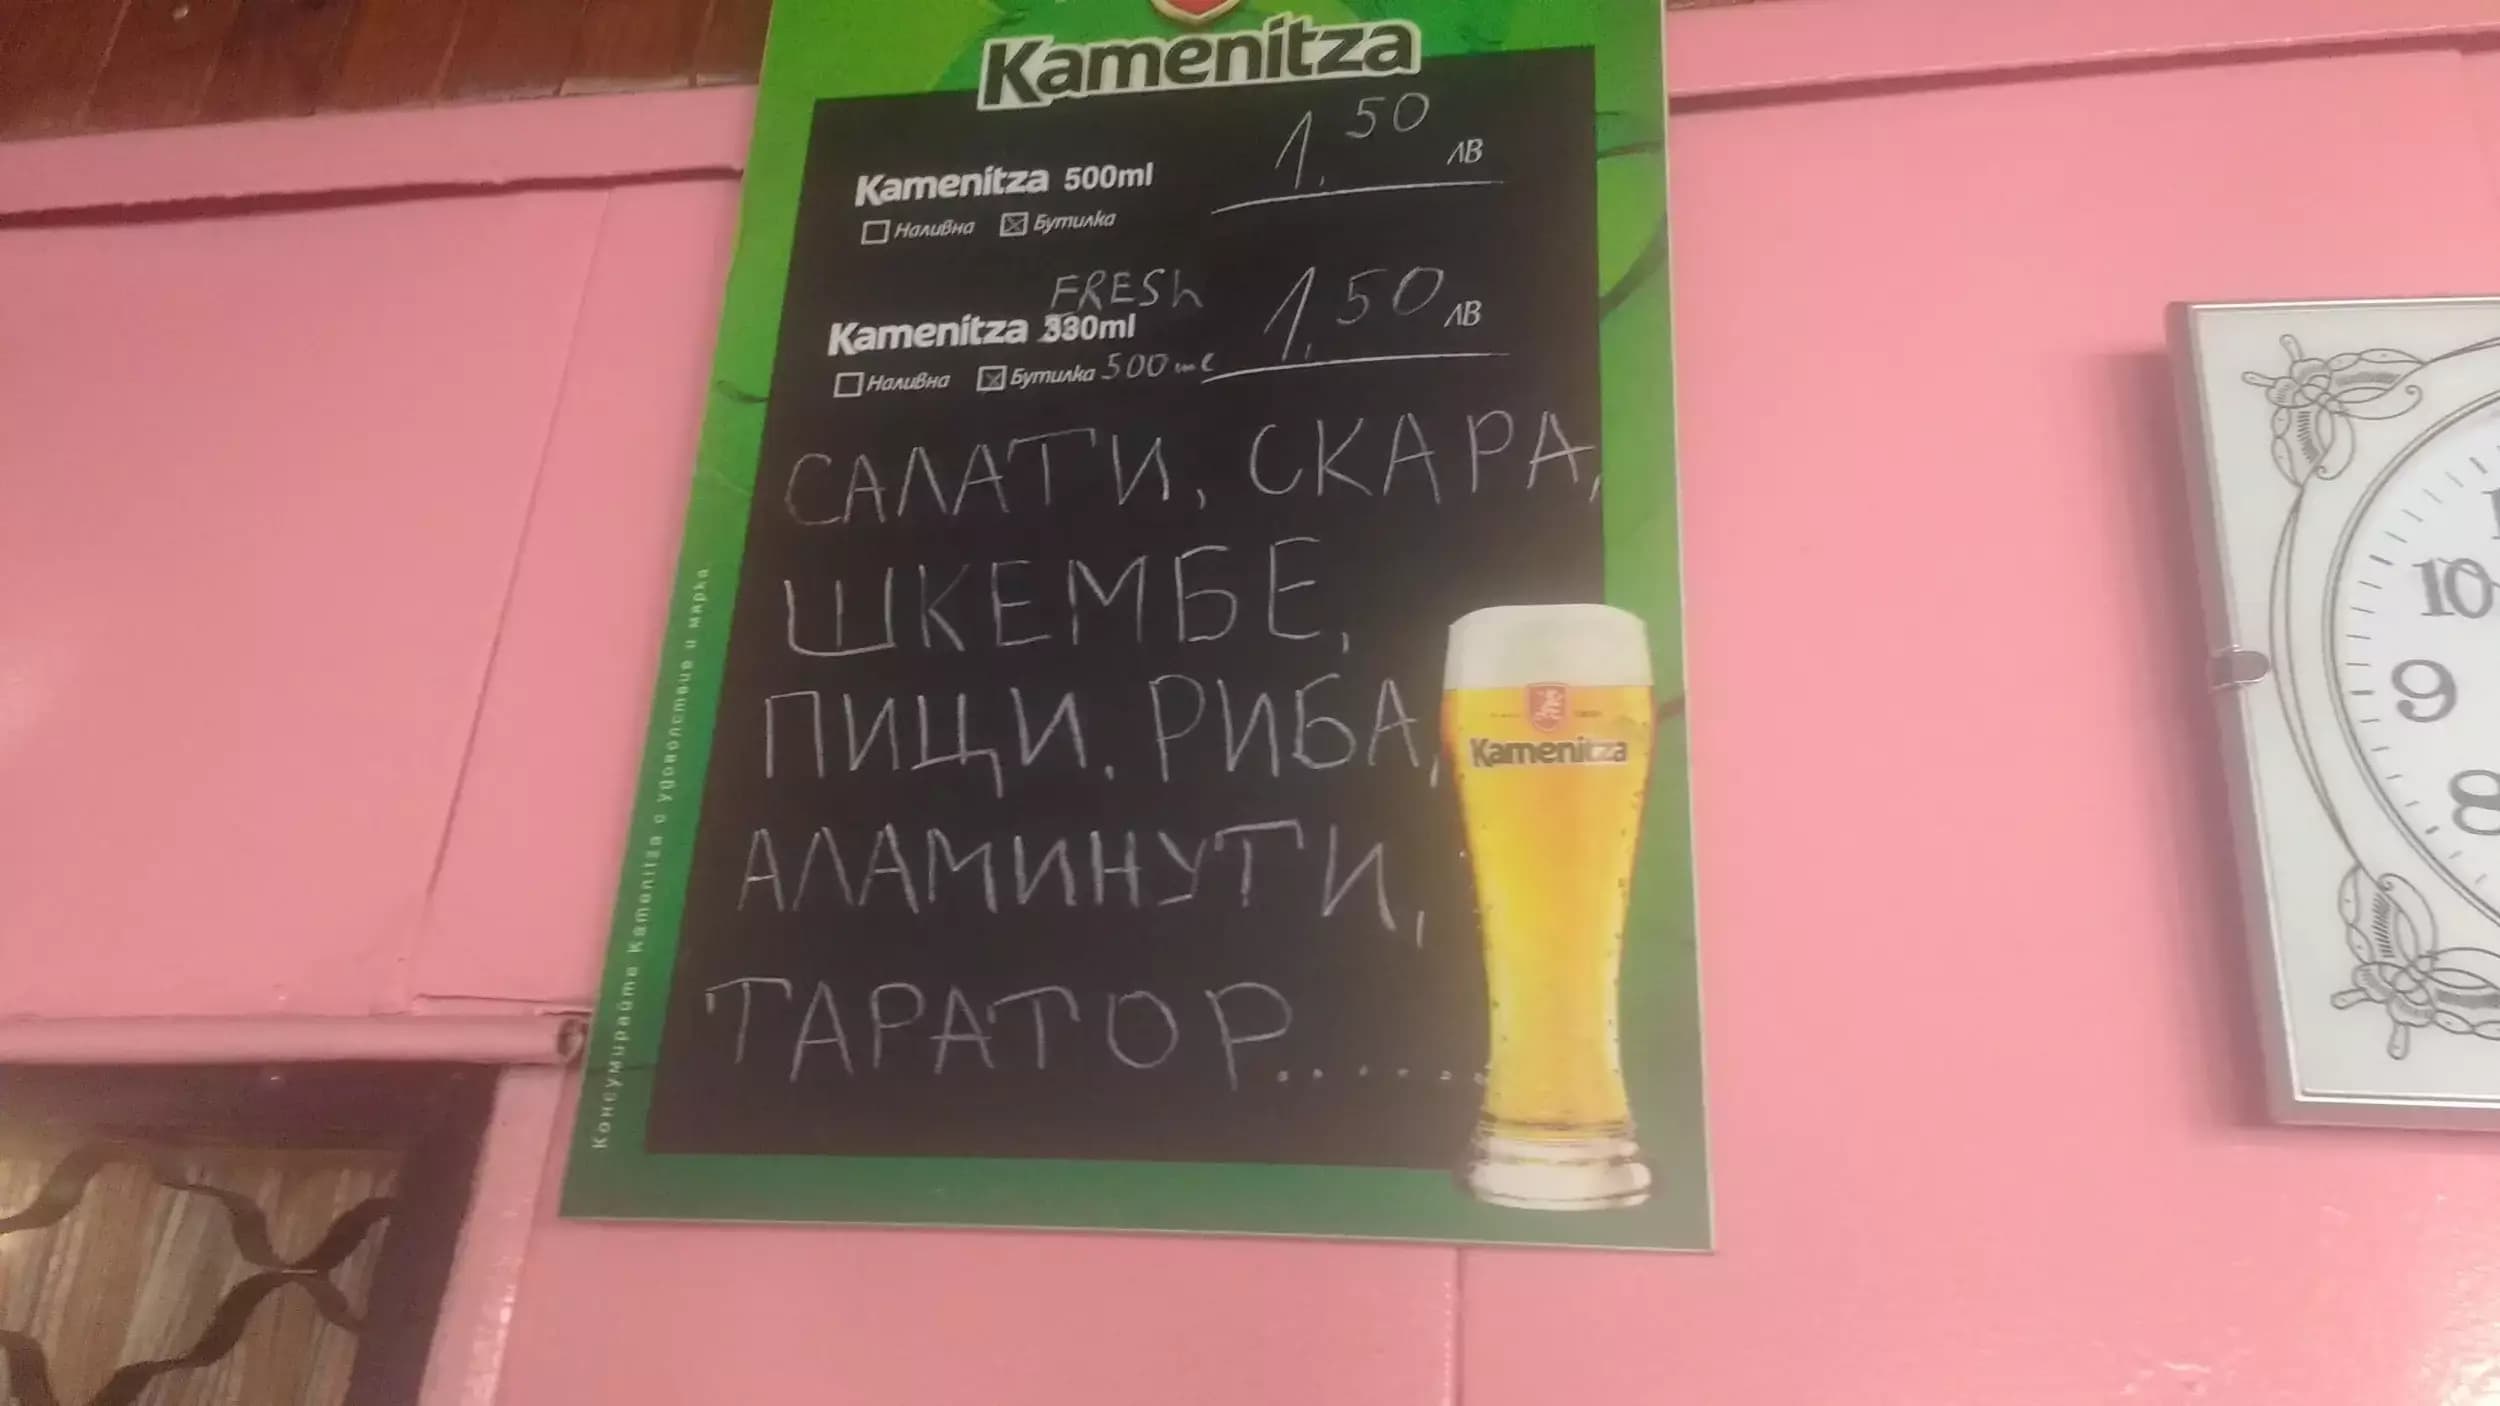 Kamenitza
1,50 лв
Kamenitza 500ml
Наливна Бутилка
FRESh
Kamenitza 330ml
1,50 лв
Наливна Бутилка 500 ml
САЛАТИ, СКАРА,
ШКЕМБЕ,
ПИЩИ. РИБА,
АЛАМИНУТИ,
ТАРАТОР......
Kamenitza
Консумирайте Kamenitza с удоволствие и мярка.
10
9
8